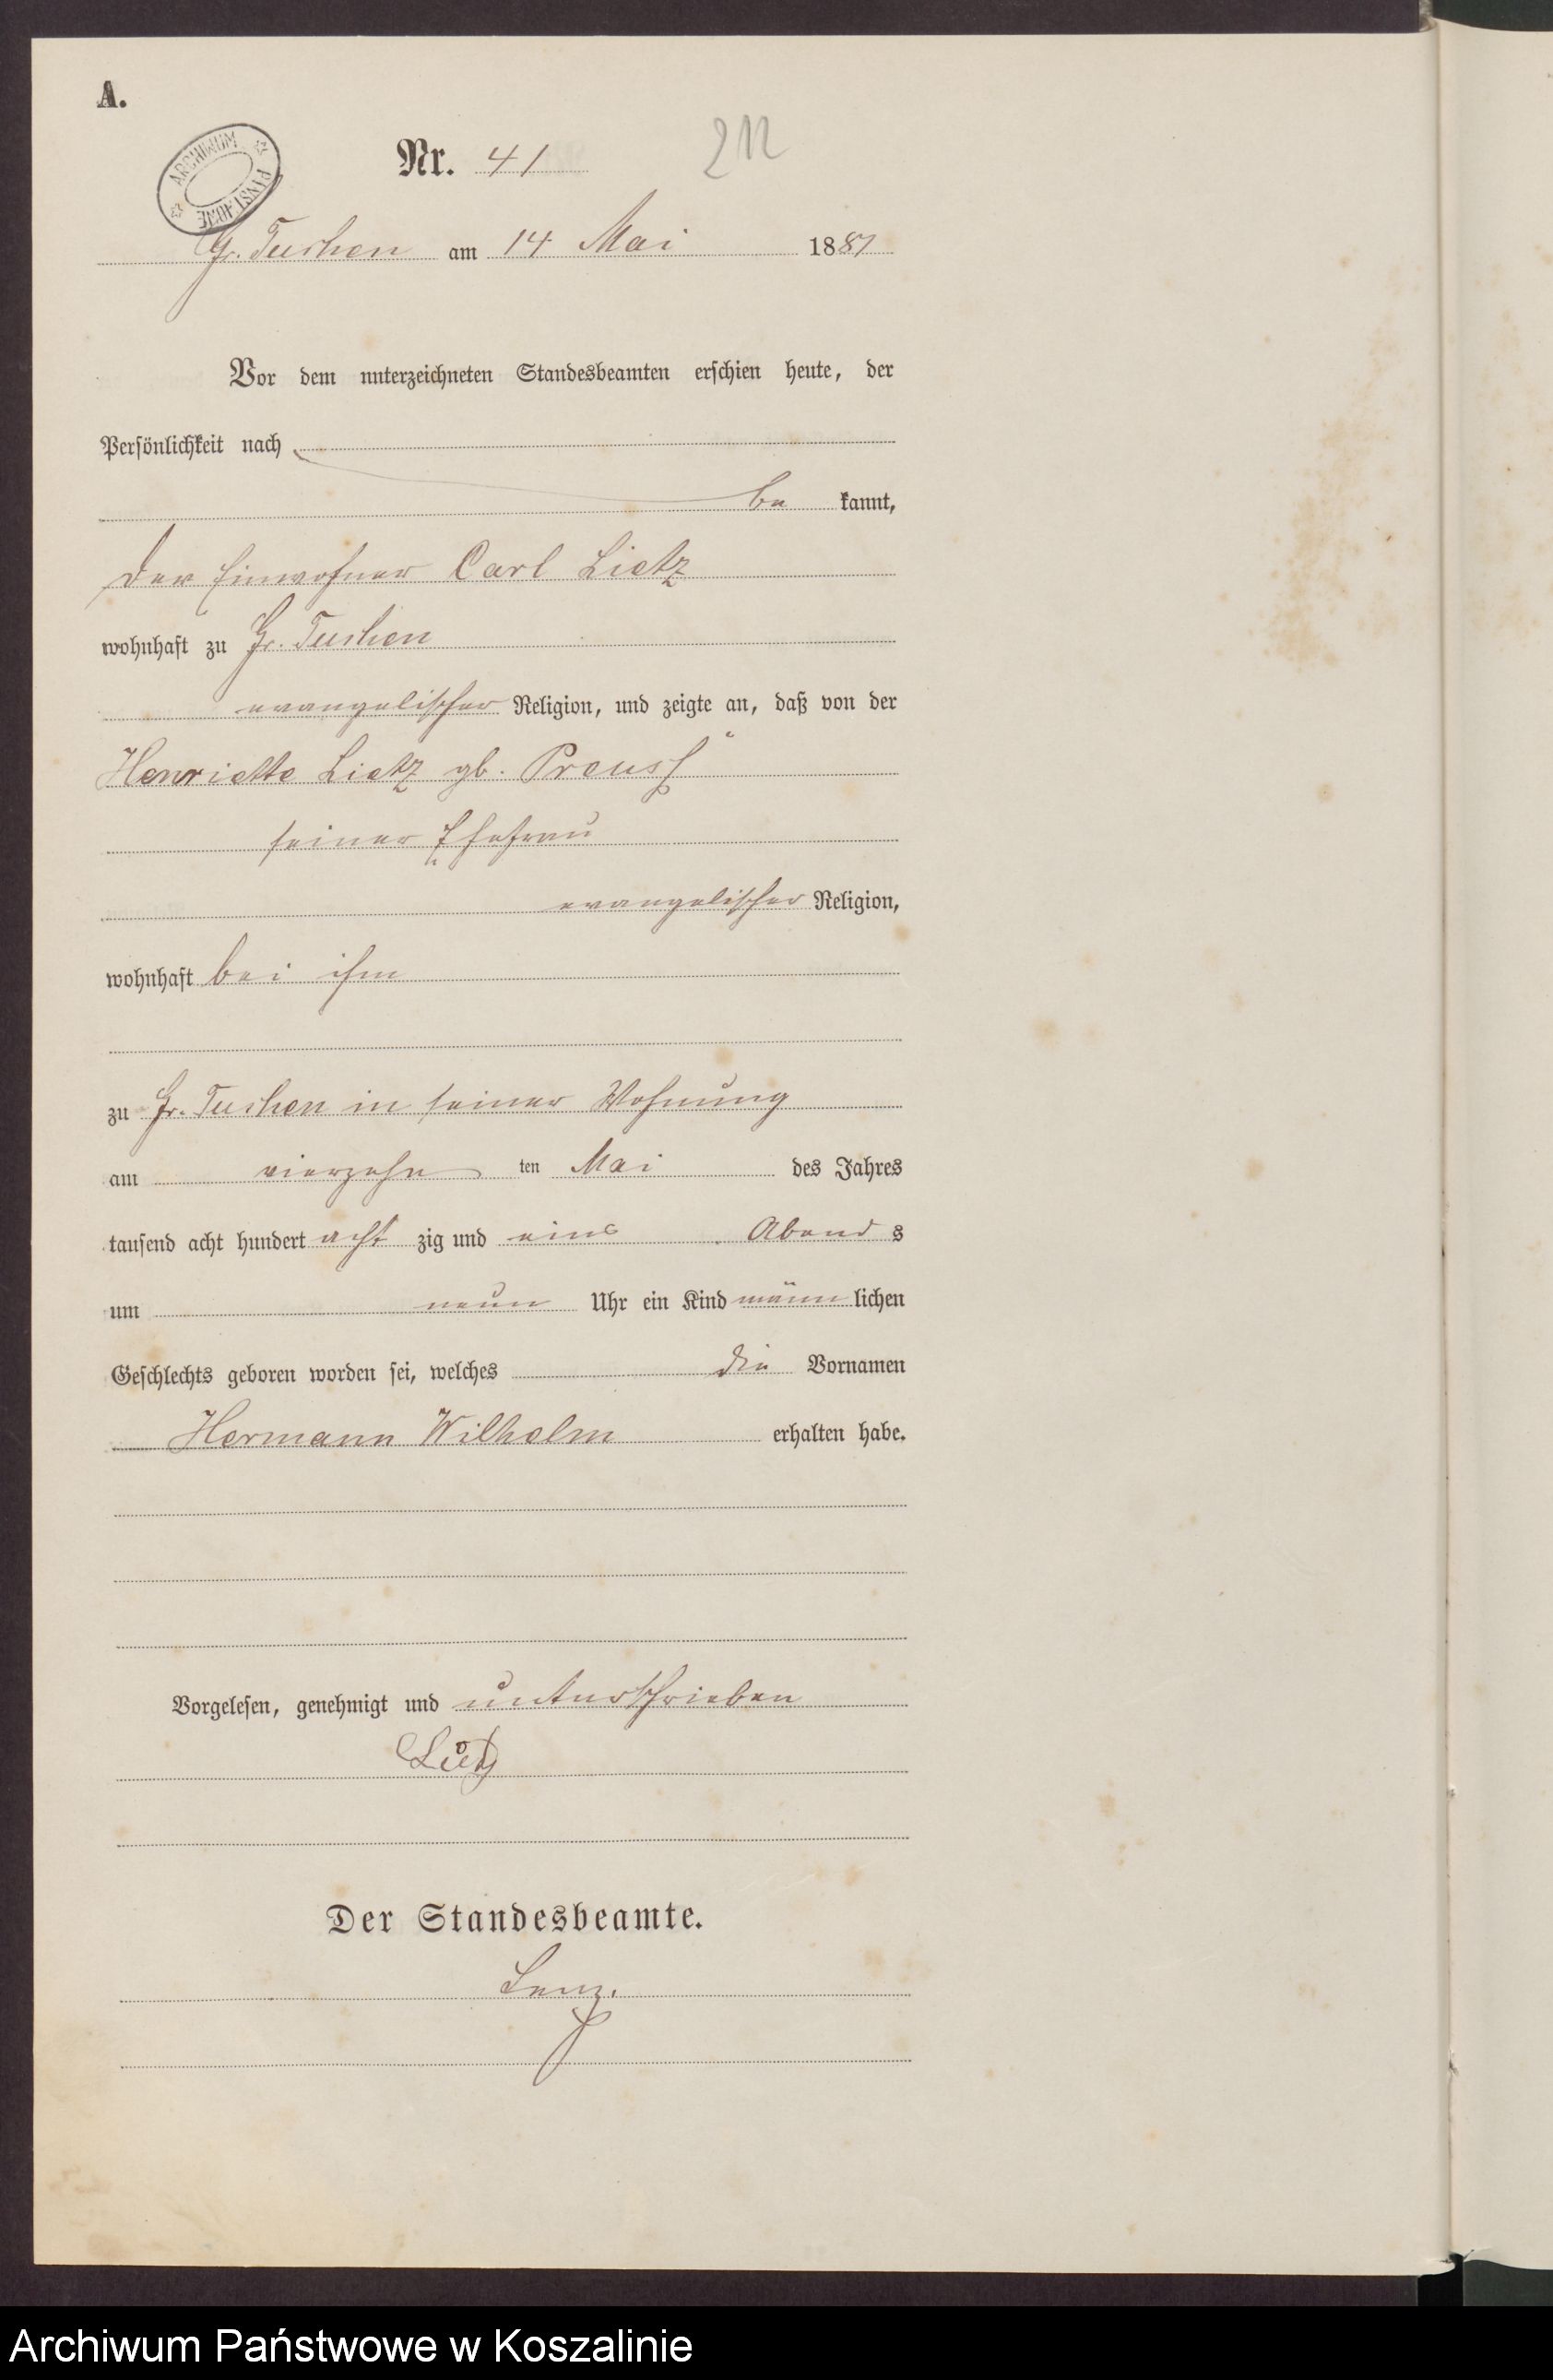 A.
ARCHIWUM PAŃSTWOWE
Nr. 41
212
Gr. Tuchen am 14 Mai 1881
Vor dem unterzeichneten Standesbeamten erschien heute, der
Persönlichkeit nach
be kannt,
der Einwohner Carl Lietz
wohnhaft zu Gr. Tuchen
evangelischer Religion, und zeigte an, daß von der
Henriette Lietz gb. Preuß
seiner Ehefrau
evangelischer Religion,
wohnhaft bei ihm
zu Gr. Tuchen in seiner Wohnung
am vierzehn ten Mai des Jahres
tausend acht hundert acht zig und eins Abend s
um neun Uhr ein Kind männ lichen
Geschlechts geboren worden sei, welches die Vornamen
Hermann Wilhelm erhalten habe.
Vorgelesen, genehmigt und unterschrieben
Lietz
Der Standesbeamte.
Lenz.
Archiwum Państwowe w Koszalinie